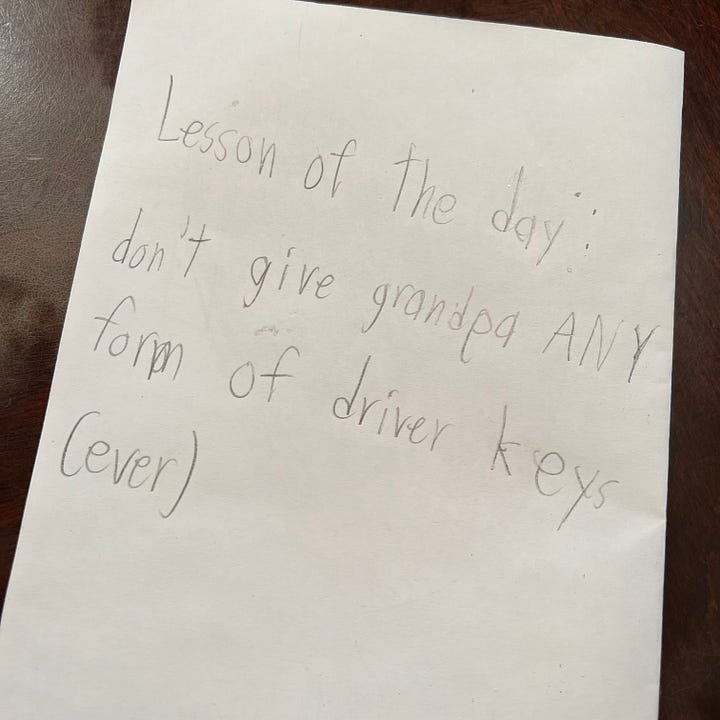 Lesson of the day:
don't give grandpa ANY
form of driver keys
(ever)